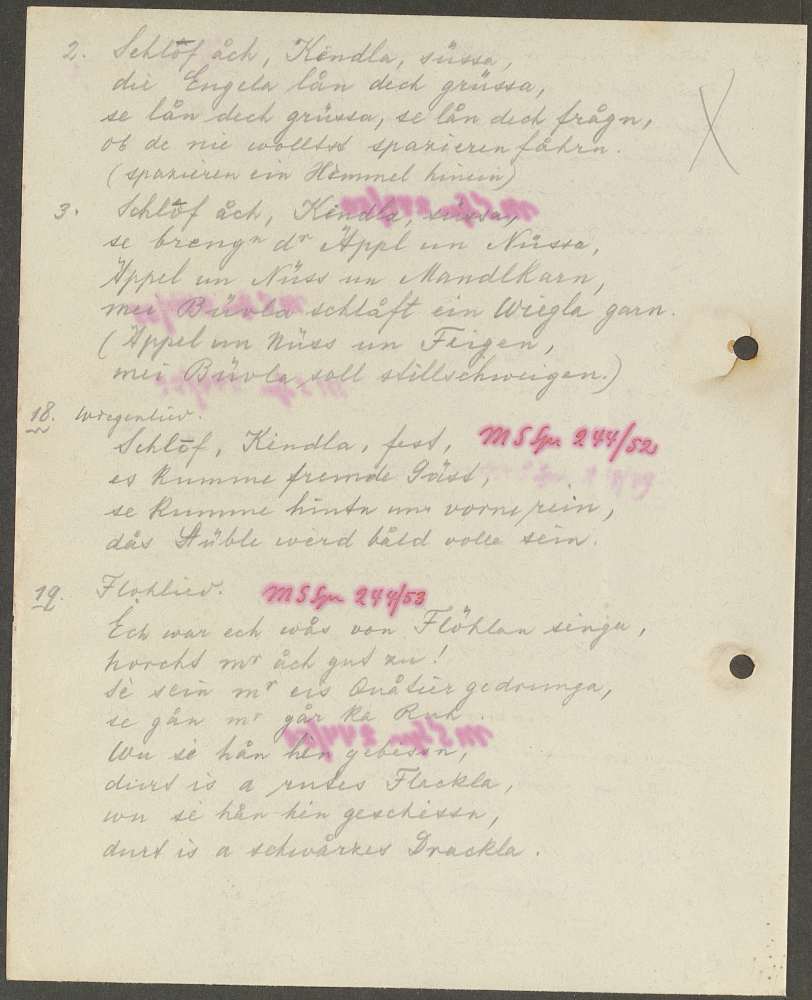 2. Schlof åch, Kendla, süssa,
die Engela lån dech grüssa,
se lån dech grüssa, se lån dech frågn,
ob de nie wolltst spazieren fåhrn.
(spazieren ein Hemmel hinein)
3. Schlof åch, Kendla, süssa,
se brengn dr Äppl un Nüssa,
Äppel un Nüss un Mandlkarn,
mei Büvla schlåft ein Wiegla garn.
(Äppel un Nüss un Feigen,
mei Büvla soll stillschweigen.)
18. Wiegenlied.
Schlof, Kendla, fest, MS Spr 244/52
es kumme fremde Gäst,
se kumme hinta un vorne rein,
dås Stüble werd båld volle sein.
19. Flohlied. MS Spr 244/53
Ech war ech wås von Flöhlan singa,
horcht mr åch gut zu!
Sè sein mr eis Quåtier gedrunga,
se gån mr går ka Ruh.
Wu sè hån hen gebessn,
durt is a rutes Flackla,
wu sè hån hen geschessn,
durt is a schwårzes Drackla.